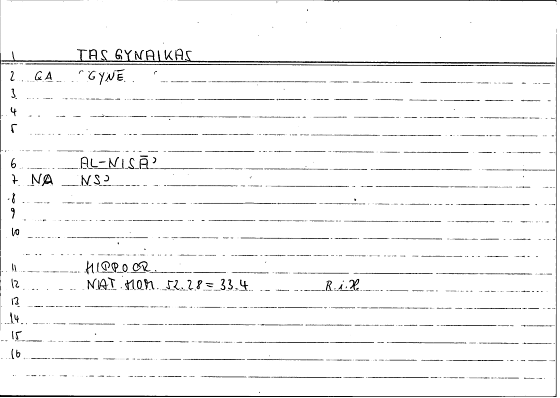 1 TAS GYNAIKAS
2 GA 'GYNĒ '
3
4
5
6 AL-NISĀʾ
7 NA NSʾ
8
9
10
11 HIPPOCR.
12 NAT. HOM. 52.28 = 33.4
13
14
15
16